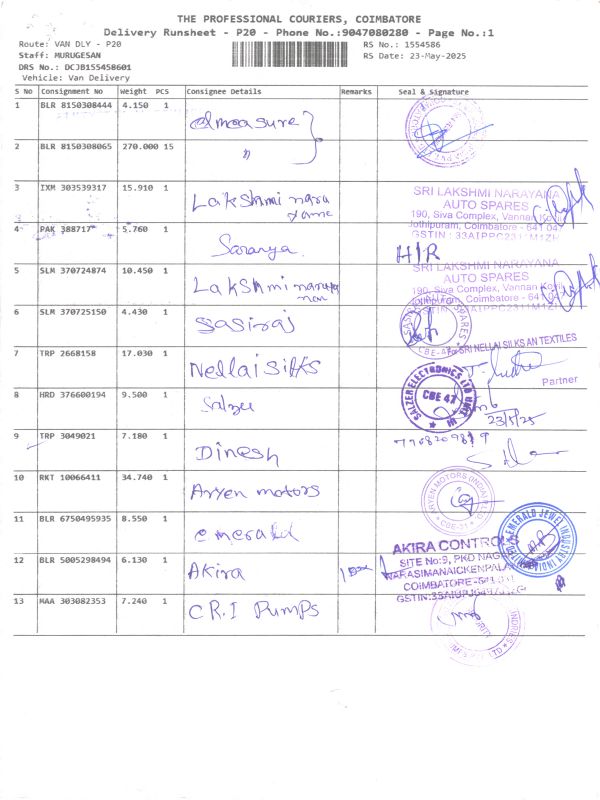 THE PROFESSIONAL COURIERS, COIMBATORE
Delivery Runsheet - P20 - Phone No.:9047080280 - Page No.:1
Route: VAN DLY - P20
RS No.: 1554586
Staff: MURUGESAN
RS Date: 23-May-2025
DRS No.: DCJB155458601
Vehicle: Van Delivery
S No Consignment No Weight PCS Consignee Details Remarks Seal & Signature
1 BLR 8150308444 4.150 1
2 BLR 8150308065 270.000 15 "
3 IXM 303539317 15.910 1 Lakshmi nara
SRI LAKSHMI NARAYANA
AUTO SPARES
190, Siva Complex, Vannan Kovil
Jothipuram, Coimbatore - 641 047
4 PAK 388717 5.760 1 Saranya H/R
5 SLM 370724874 10.450 1 Lakshmi
SRI LAKSHMI NARAYANA
AUTO SPARES
190, Siva Complex, Vannan Kovil
Coimbatore - 641
6 SLM 370725150 4.430 1 Sasiraj
7 TRP 2668158 17.030 1 Nellai Silks
For SRI NELLAI SILKS AN TEXTILES
Partner
8 HRD 376600194 9.500 1 Salzer
SALZER ELECTRONICS LTD
CBE 47
23/5/25
9 TRP 3049021 7.180 1 Dinesh
10 RKT 10066411 34.740 1 Aryen motors
ARYEN MOTORS (INDIA)
11 BLR 6750495935 8.550 1 emerald
EMERALD JEWEL INDUSTRY
12 BLR 5005298494 6.130 1 Akira 1 Box
AKIRA CONTROL
SITE No:9, PKD NAGAR
COIMBATORE
13 MAA 303082353 7.240 1 C.R.I Pumps